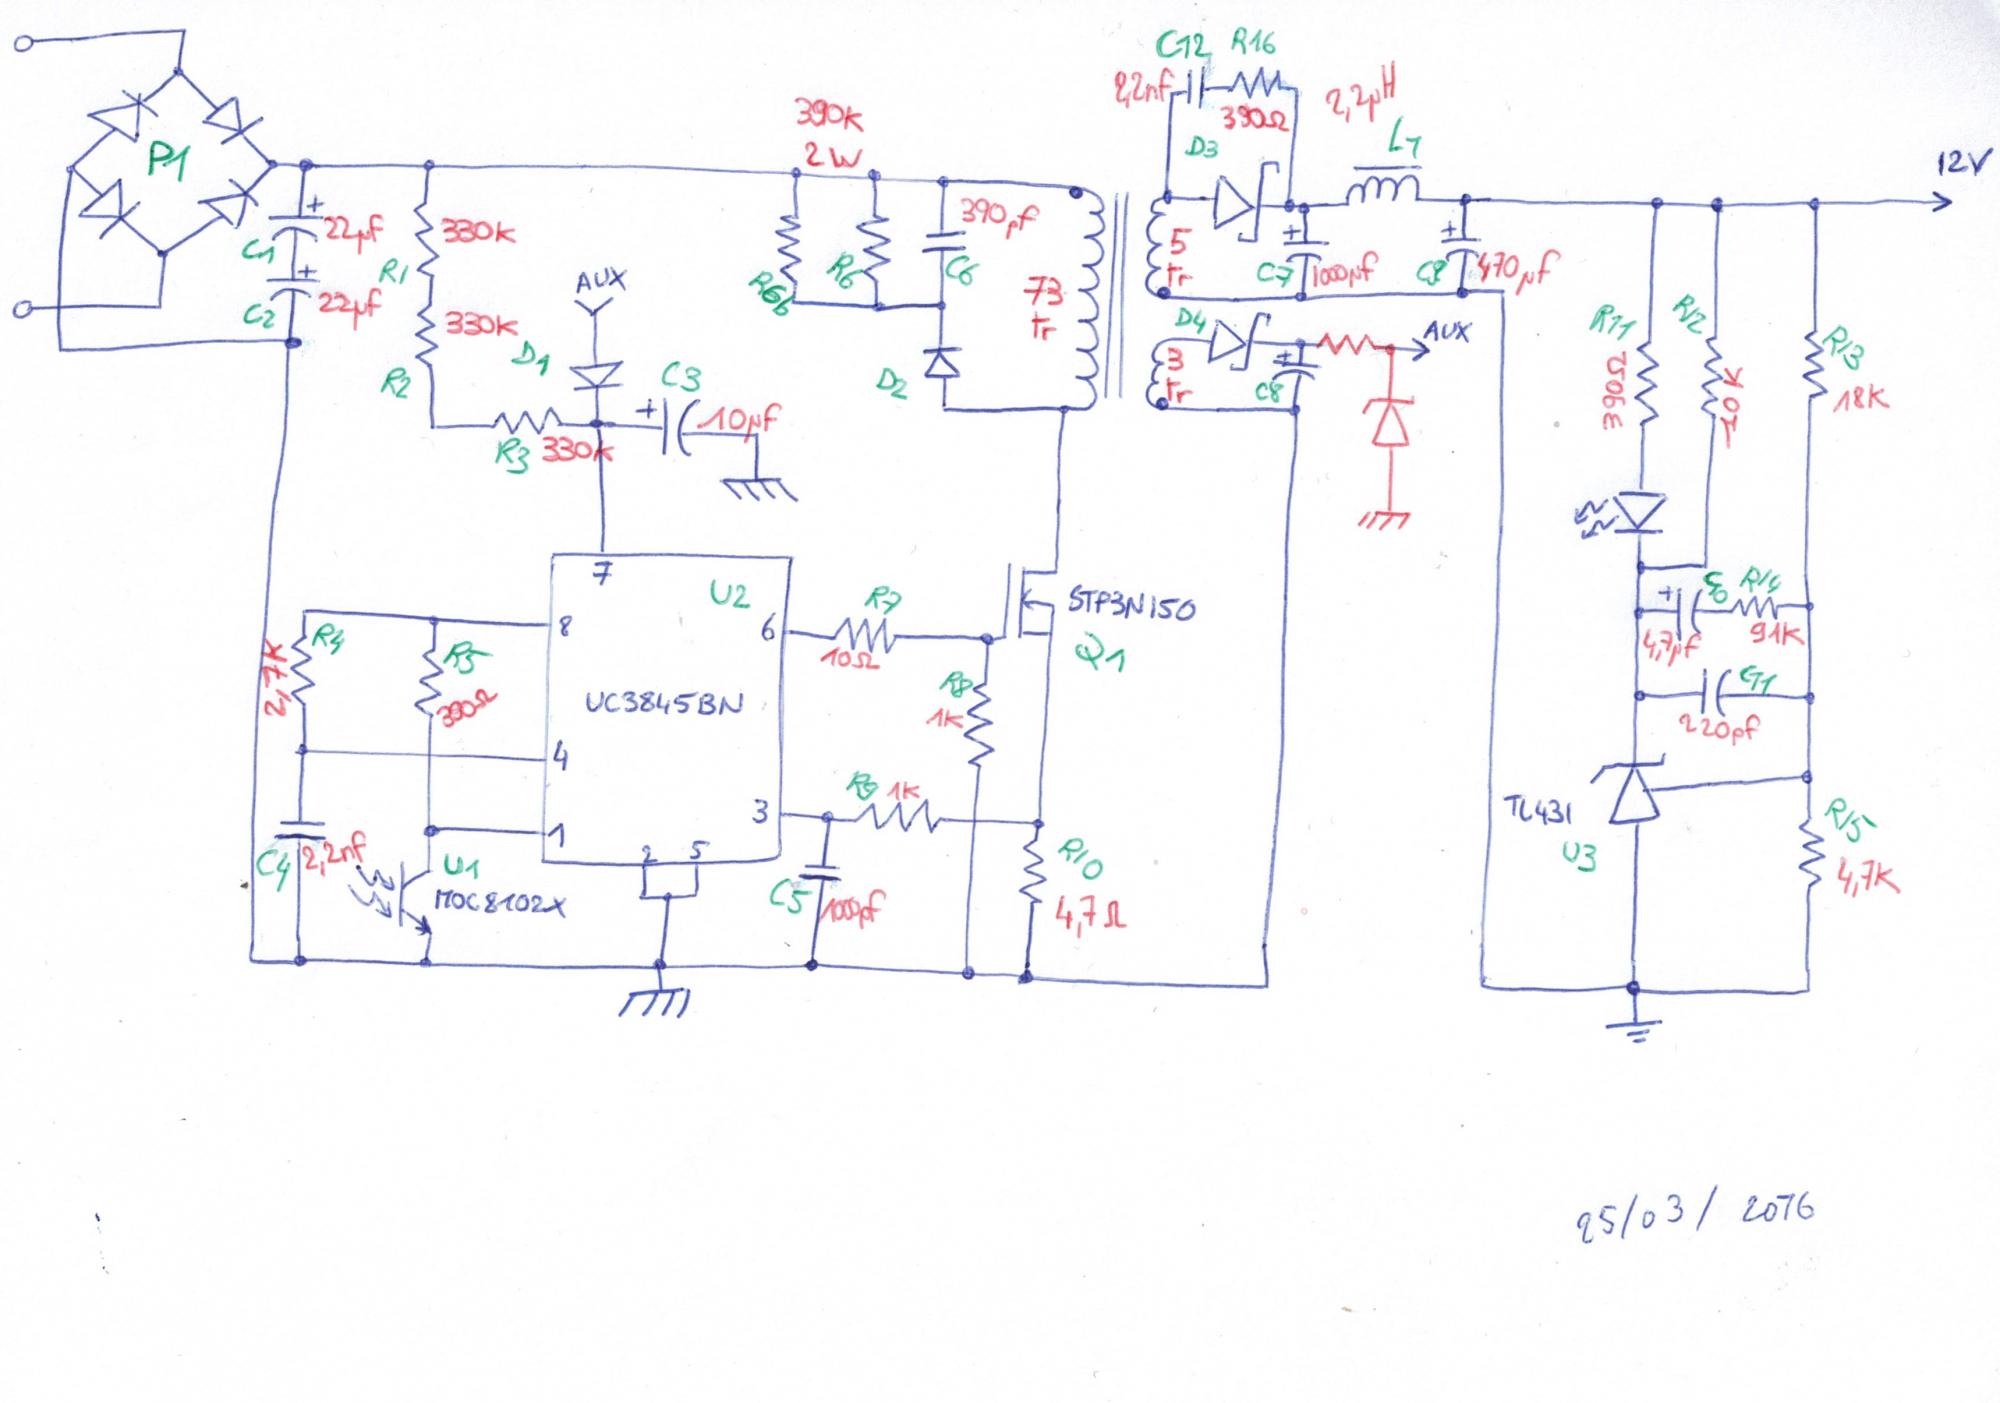 P1
C1
22µf
C2
22µf
R1
330K
R2
330K
R3
330K
D1
AUX
C3
10µf
390K
2W
R6b
R6
390pf
C6
D2
73
tr
C12
R16
2,2nf
390Ω
D3
2,2µH
L1
12V
5
tr
C7
1000µf
C9
470µf
D4
AUX
3
tr
C8
R11
390Ω
R12
10K
R13
18K
R14
4,7µf
91K
C11
220pf
TL431
U3
R15
4,7K
R4
2,7K
R5
390Ω
C4
2,2nf
U1
MOC8102X
7
U2
8
6
UC3845BN
4
3
1
2
5
R7
10Ω
STP3N150
Q1
R8
1K
R9
1K
C5
1000pf
R10
4,7Ω
25/03/2016